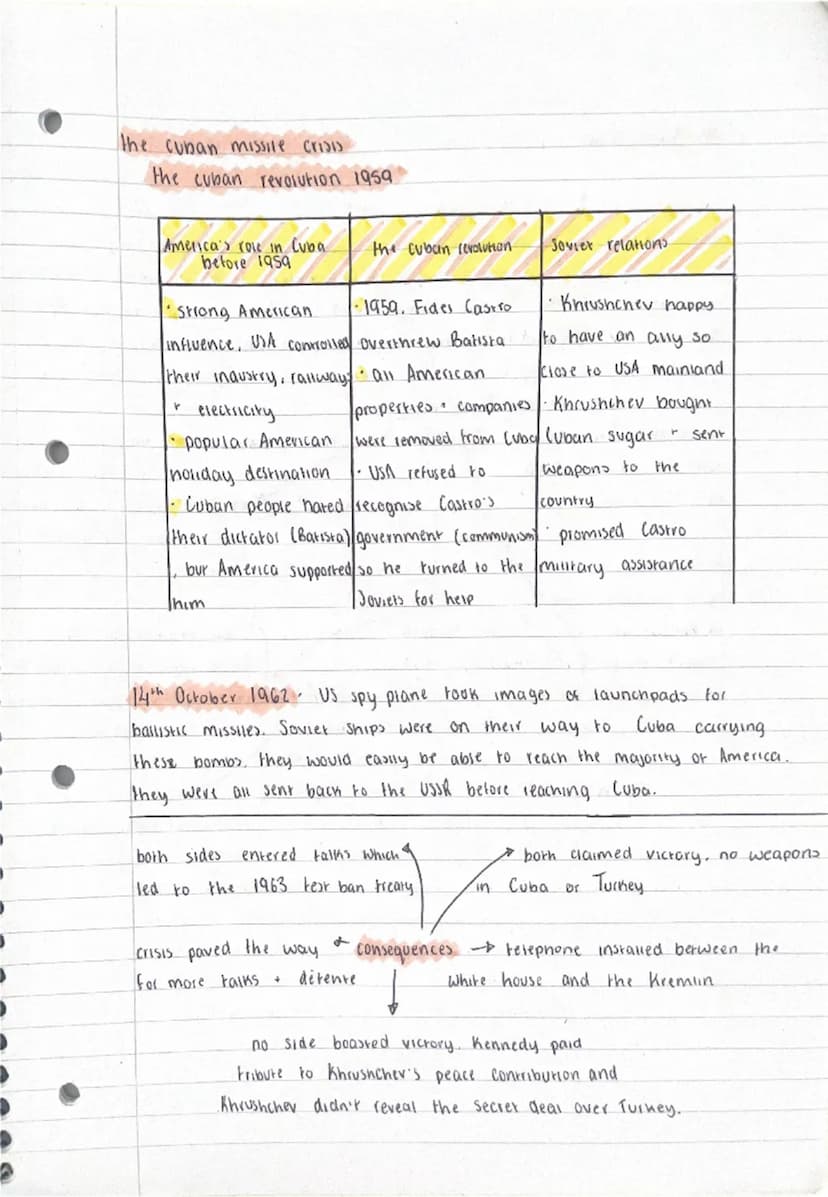 the cuban missile crisis
the cuban revolution 1959
America's role in Cuba
before 1959
· strong American
influence, USA controlled
their industry, railways
+ electricity
· popular American
holiday destination
· Cuban people hated
their dictator (Batista)
, but America supported
him
the cuban revolution
· 1959, Fidel Castro
overthrew Batista
· all American
properties + companies
were removed from Cuba
· USA refused to
recognise Castro's
government (communism)
so he turned to the
Soviets for help
Soviet relations
· Khrushchev happy
to have an ally so
close to USA mainland
· Khrushchev bought
Cuban sugar + sent
weapons to the
country
· promised Castro
military assistance
14th October 1962. US spy plane took images of launchpads for
ballistic missiles. Soviet ships were on their way to Cuba carrying
these bombs. they would easily be able to reach the majority of America.
they were all sent back to the USSR before reaching Cuba.
both sides entered talks which
led to the 1963 test ban treaty
both claimed victory. no weapons
in Cuba or Turkey
crisis paved the way
for more talks + détente
consequences
telephone installed between the
white house and the Kremlin
no side boasted victory. Kennedy paid
tribute to Khrushchev's peace contribution and
Khrushchev didn't reveal the secret deal over Turkey.